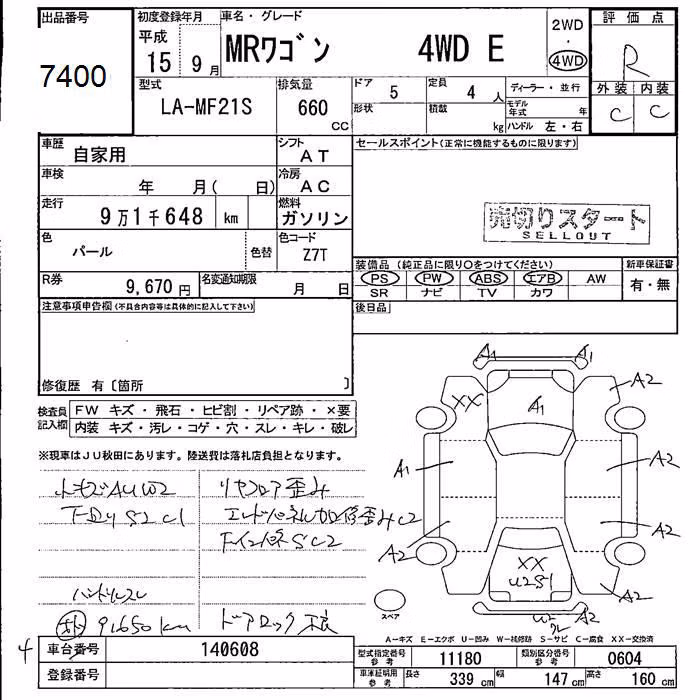 出品番号
7400
初度登録年月
平成
15 9月
車名・グレード
MRワゴン 4WD E
2WD
・
4WD
評価点
R
外装 内装
C C
型式
LA-MF21S
排気量
660
CC
ドア 5
定員 4 人
ディーラー・並行
形状
積載
kg
モデル年式 年
ハンドル 左・右
車歴
自家用
シフト
AT
セールスポイント(正常に機能するものに限ります)
車検
年 月( 日)
冷房
AC
走行
9万1千648 km
燃料
ガソリン
売切りスタート
SELLOUT
色
パール
色替
色コード
Z7T
装備品(純正品に限り○をつけてください)
新車保証書
PS PW ABS エアB AW
有・無
SR ナビ TV カワ
R券
9,670 円
名変通知期限
月 日
注意事項申告欄(不具合内容等は具体的に記入して下さい)
後日品
修復歴 有〔箇所 〕
検査員記入欄
FW キズ・飛石・ヒビ割・リペア跡・×要
内装 キズ・汚レ・コゲ・穴・スレ・キレ・破レ
※現車はJU秋田にあります。陸送費は落札店負担となります。
A1 A1
A2
XX
A1
A1
A2
A2
A2
XX
U2S1
A2
A2
スペア
リヤフロア歪み
S2 C1
C2
SC2
ハンドルスレ
91650km
ドアロック不良
A-キズ E-エクボ U-凹み W-補修跡 S-サビ C-腐食 XX-交換済
4
車台番号
140608
登録番号
型式指定番号
参考
11180
類別区分番号
参考
0604
車庫証明用
参考
長さ 339 cm
幅 147 cm
高さ 160 cm